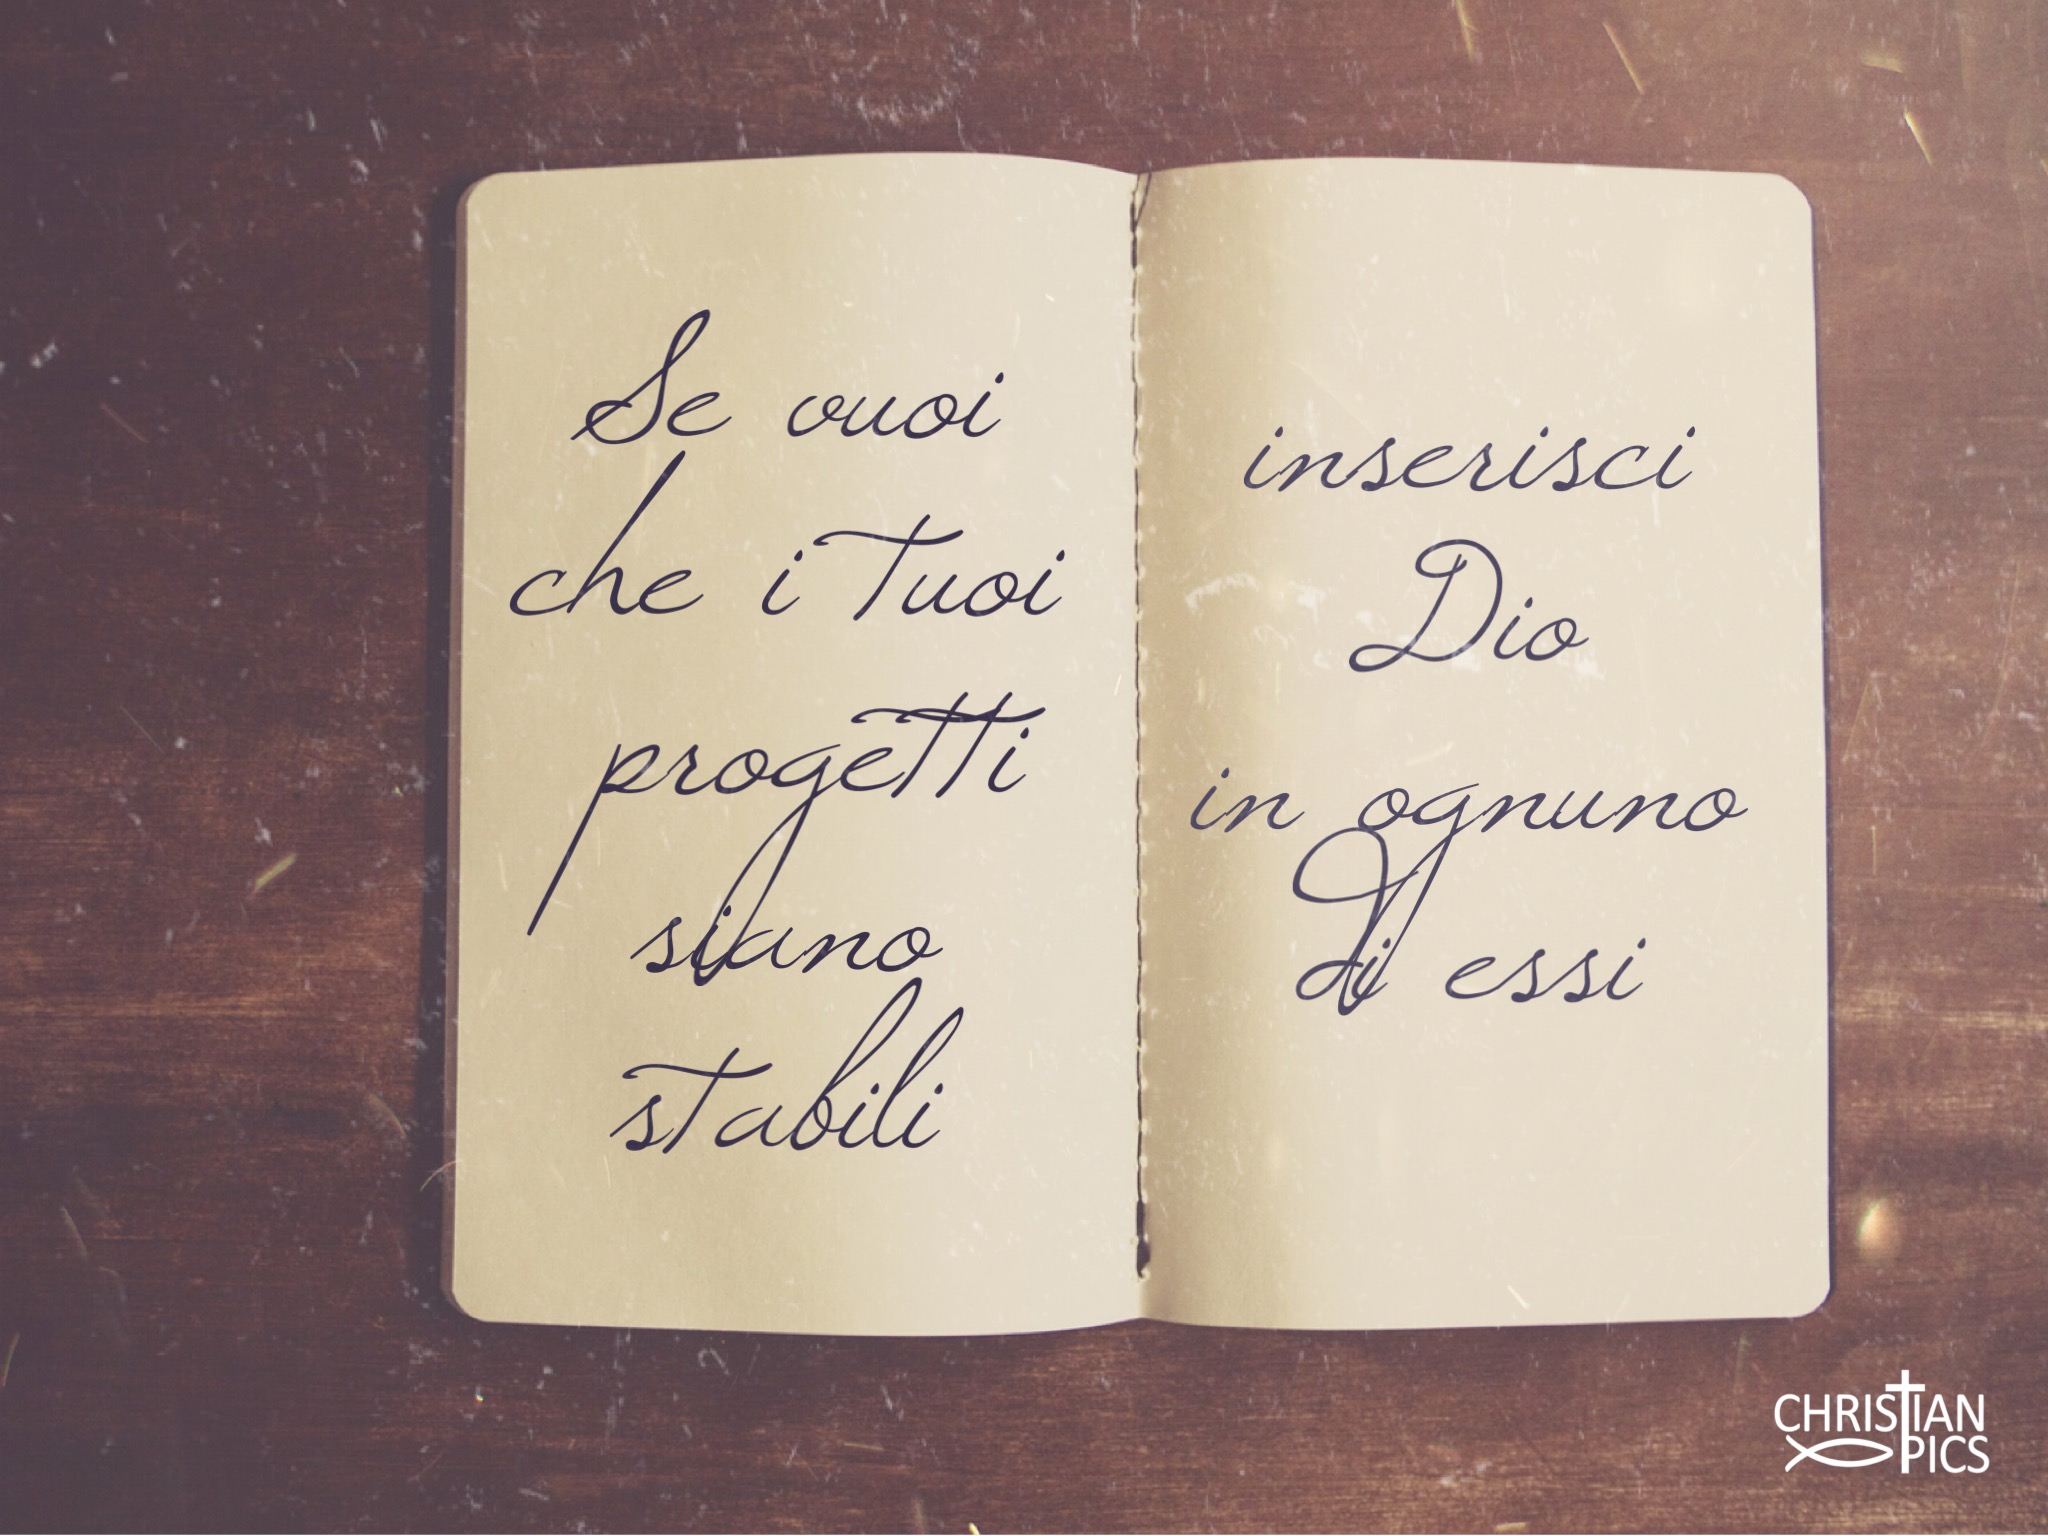 Se vuoi
che i tuoi
progetti
siano
stabili
inserisci
Dio
in ognuno
di essi
CHRISTIAN
PICS